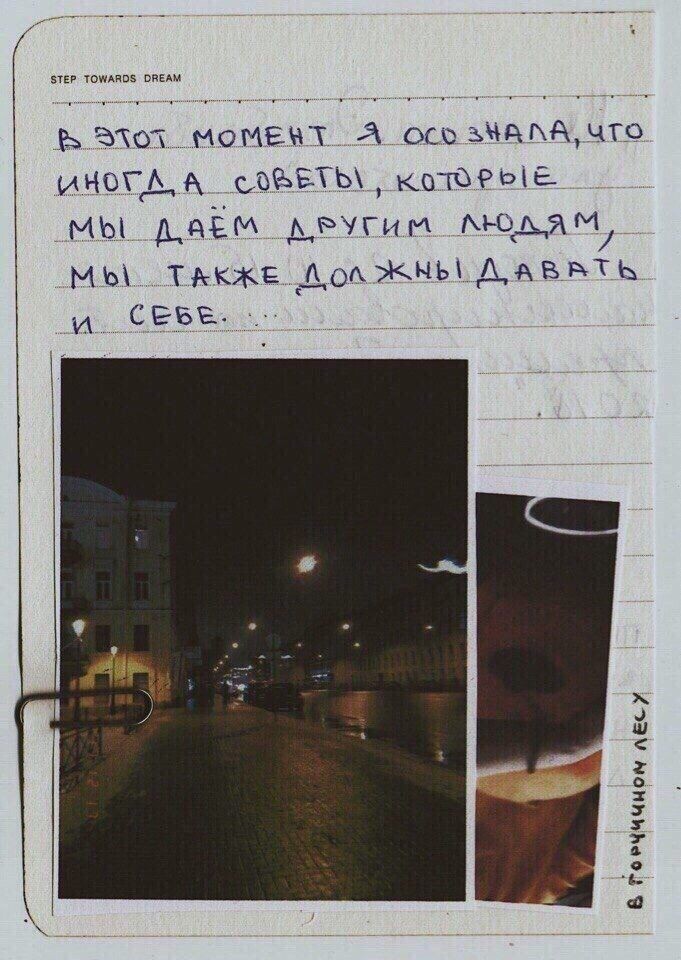 STEP TOWARDS DREAM
В ЭТОТ МОМЕНТ Я ОСОЗНАЛА, ЧТО
ИНОГДА СОВЕТЫ, КОТОРЫЕ
МЫ ДАЁМ ДРУГИМ ЛЮДЯМ,
МЫ ТАКЖЕ ДОЛЖНЫ ДАВАТЬ
И СЕБЕ.
В ГОРЧИЧНОМ ЛЕСУ